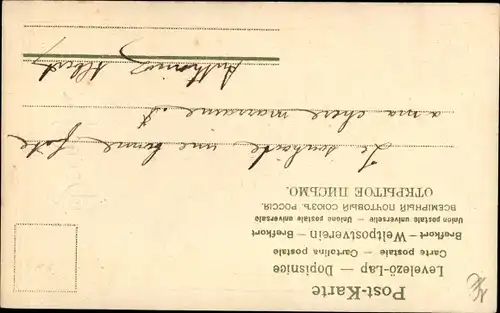 Post-Karte
Levelező-Lap — Dopisnice
Carte postale — Cartolina postale
Brefkort — Weltpostverein — Brefkort
Union postale universelle — Unione postale universale
ВСЕМІРНЫЙ ПОЧТОВЫЙ СОЮЗЪ. РОССІЯ.
ОТКРЫТОЕ ПИСЬМО.
Je souhaite une bonne fête
a ma chère marraine
Albert